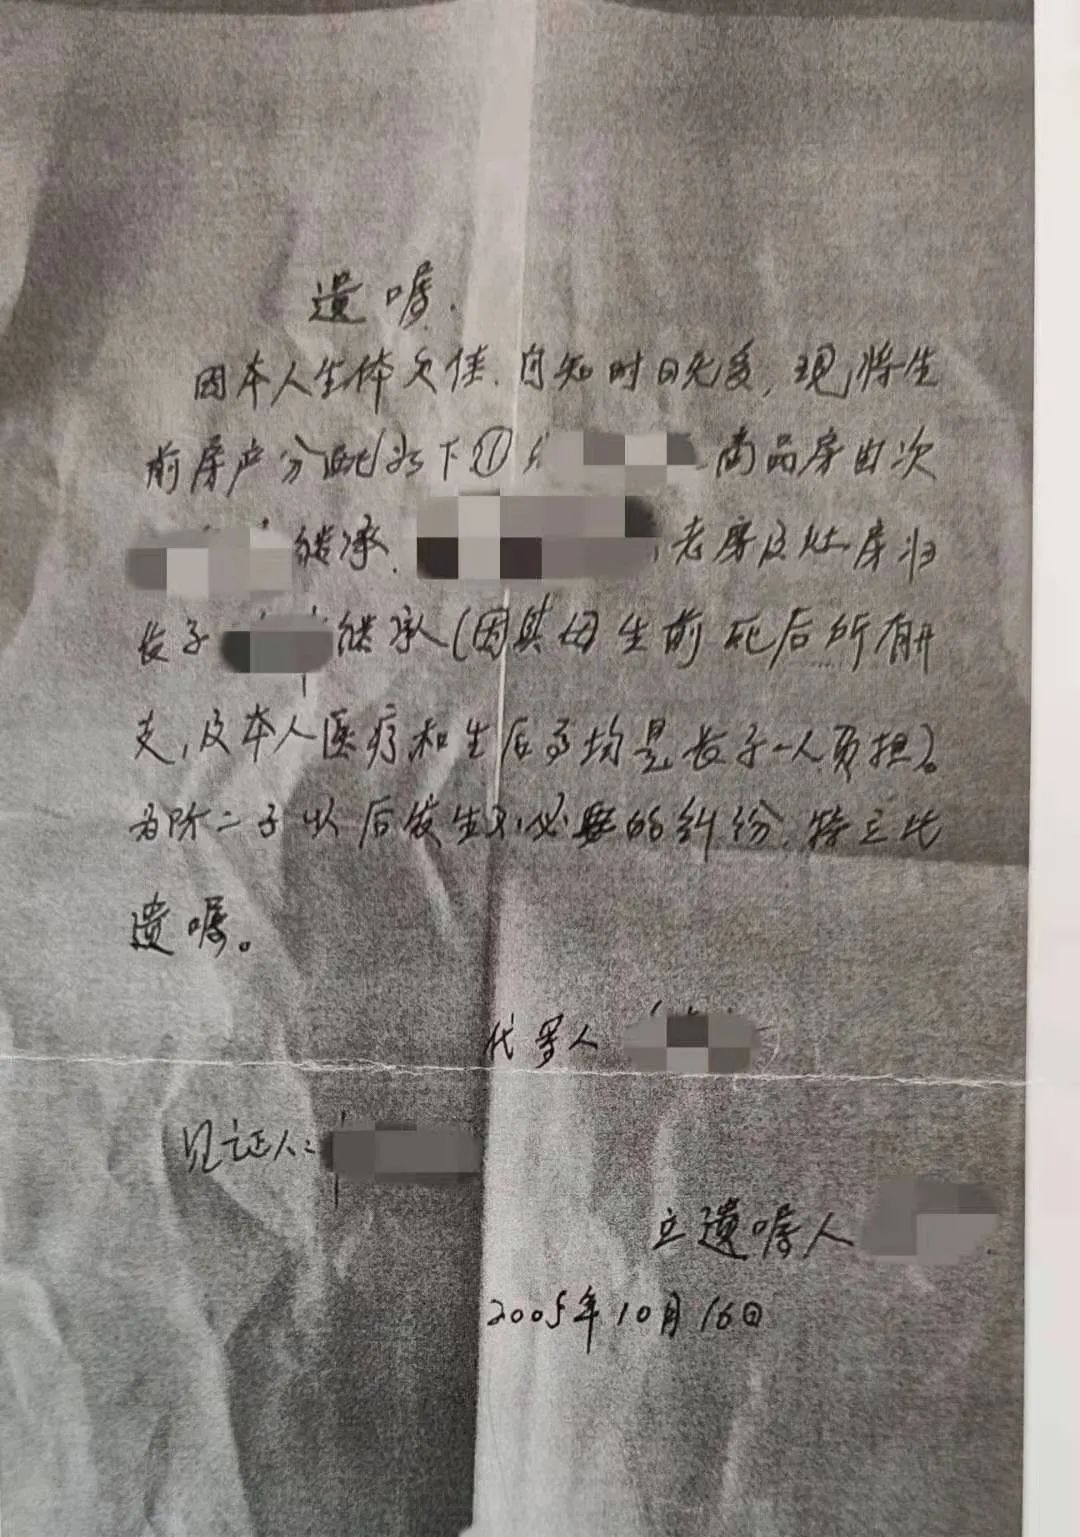 遗嘱.
因本人生体欠佳.自知时日无多,现将生
前房产分配如下① 商品房由次
继承. 老房及灶房归
长子 继承(因其母生前死后所有开
支,及本人医疗和生后事均是长子一人负担)。
为防二子以后发生不必要的纠纷.特立此
遗嘱。
代写人
见证人:
立遗嘱人
2005年10月16日